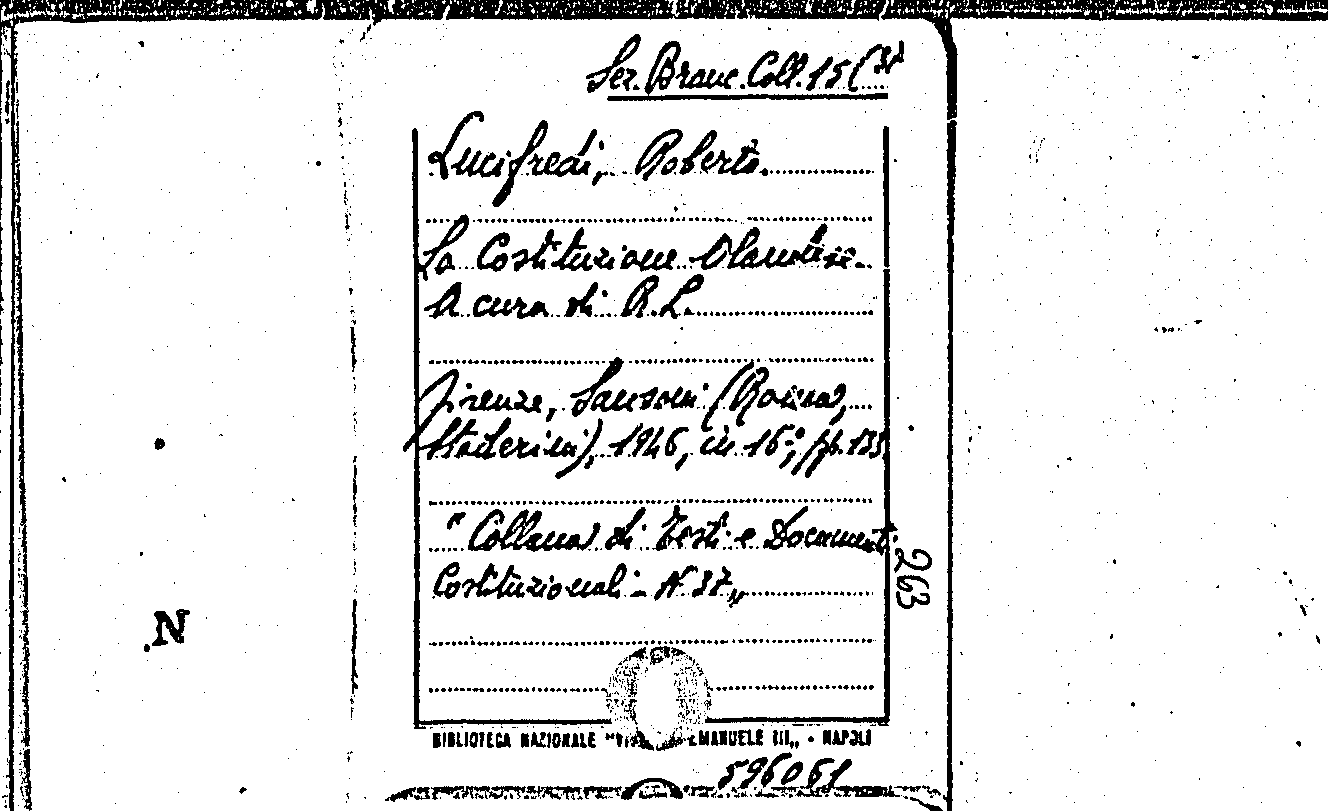 Sez. Branc. Coll. 15 (37
Lucifredi, Roberto.
La Costituzione Olandese.
A cura di R. L.
Firenze, Sansoni (Roma,
Staderini), 1946, in 16°, pp. 135
" Collana di Testi e Documenti
Costituzionali - N. 37 „
263
N
BIBLIOTECA NAZIONALE " EMANUELE III„ - NAPOLI
596061